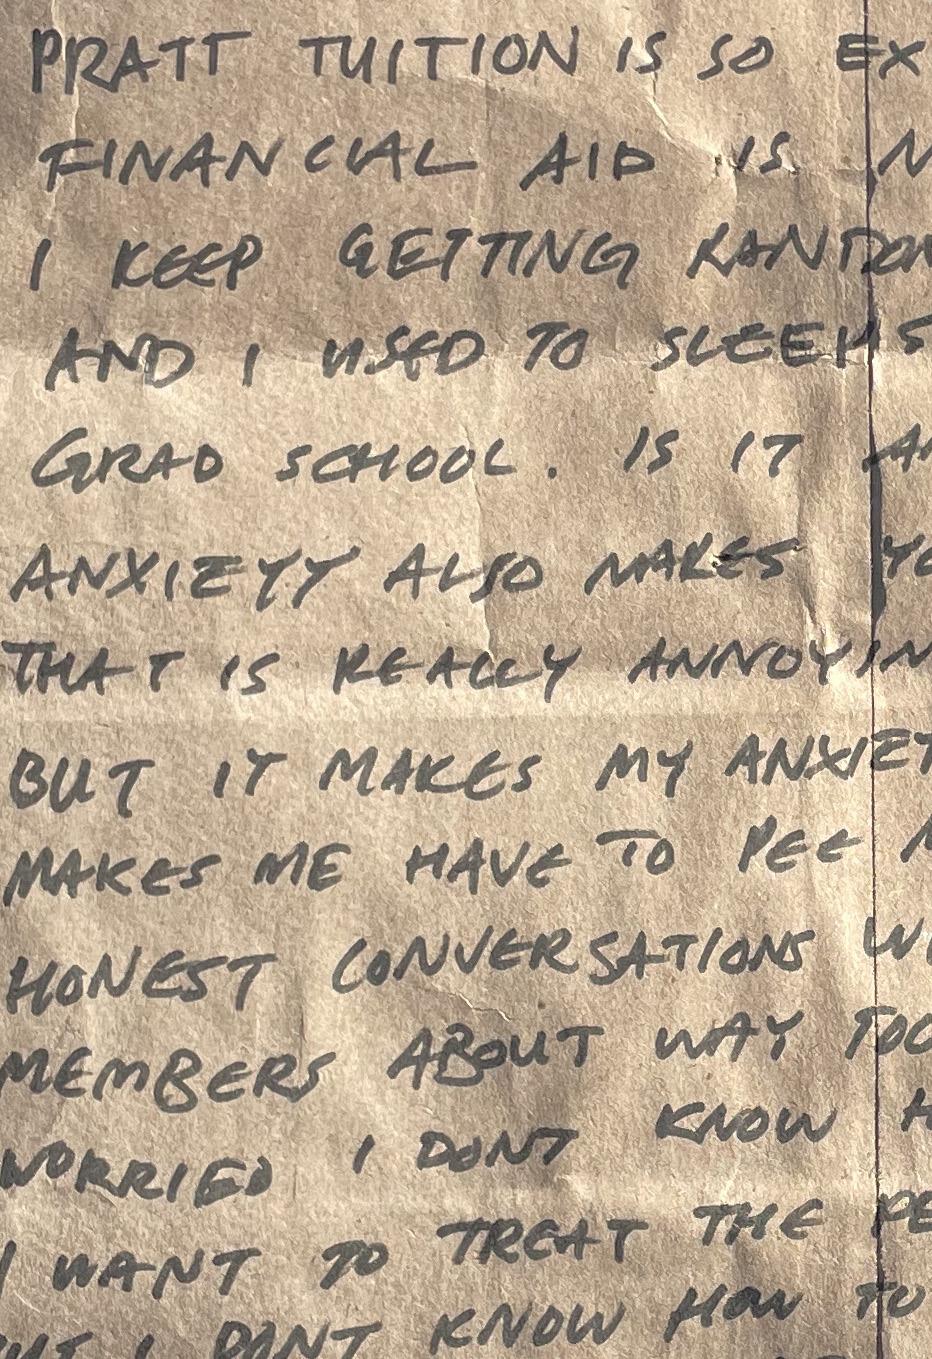 PRATT TUITION IS SO EX
FINANCIAL AID IS N
I KEEP GETTING RANDOM
AND I USED TO SLEEP
GRAD SCHOOL. IS IT
ANXIETY ALSO MAKES YO
THAT IS REALLY ANNOYIN
BUT IT MAKES MY ANXIET
MAKES ME HAVE TO PEE
HONEST CONVERSATIONS WI
MEMBERS ABOUT WAY TOO
WORRIED I DONT KNOW H
I WANT TO TREAT THE PE
I DONT KNOW HOW TO